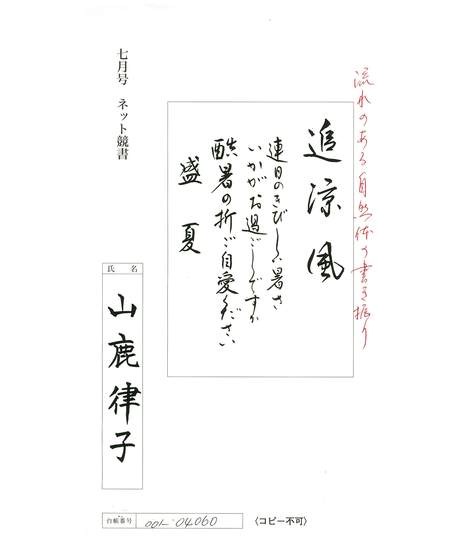 流れのある自然体の書き振り
追涼風
連日のきびしい暑さ
いかがお過ごしですか
酷暑の折ご自愛ください
盛夏
七月号 ネット競書
氏名
山鹿律子
台帳番号 001-04060
〈コピー不可〉